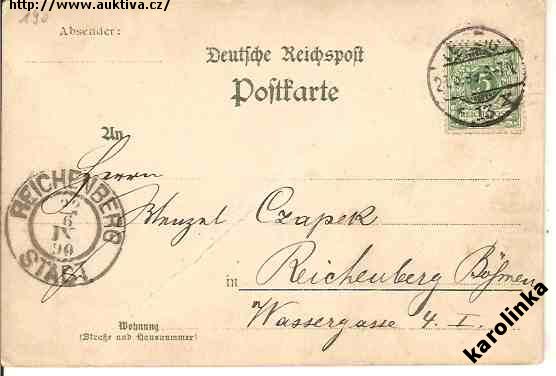 http://www.auktiva.cz/
190
Absender:
Deutsche Reichspost
Postkarte
LEIPZIG
5
13
An
Herrn
Wenzel Czapek
in Reichenberg Böhmen
Wassergasse 4. I.
Wohnung
(Straße und Hausnummer)
REICHENBERG
STADT
IX
99
karolinka